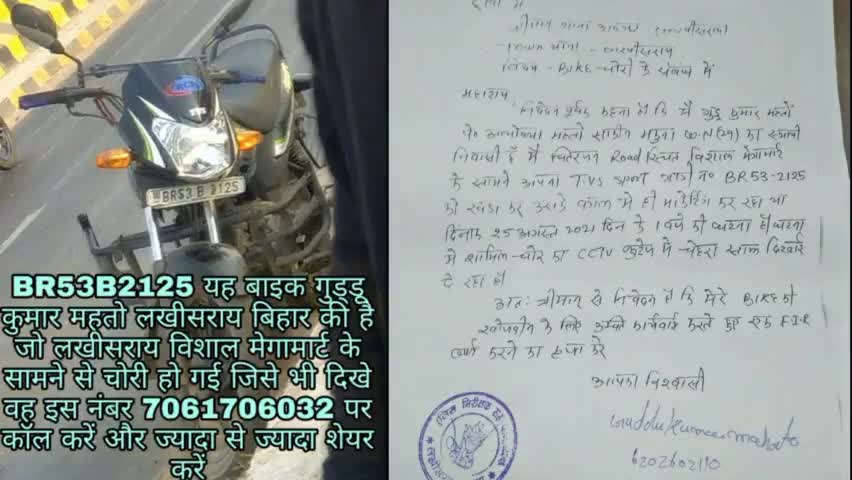 BR53 B 2125
BR53B2125 यह बाइक गुड्डू
कुमार महतो लखीसराय बिहार की है
जो लखीसराय विशाल मेगामार्ट के
सामने से चोरी हो गई जिसे भी दिखे
वह इस नंबर 7061706032 पर
कॉल करें और ज्यादा से ज्यादा शेयर
करें
श्रीमान थाना
थाना - लखीसराय
विषय - BIKE - चोरी के संबंध में
महाशय,
निवेदन पूर्वक कहना है कि मैं गुड्डु कुमार महतो
महतो W.N (29) का स्थायी
निवासी हूँ मैं Road स्थित विशाल मेगामार्ट
के सामने अपना T.V.S SPORT गाड़ी नं० BR53-2125
को खड़ा कर में ही मार्केटिंग कर रहा था
दिनांक 25 अगस्त 2021 दिन के 1 बजे की घटना है। घटना
में शामिल चोर का CCTV फुटेज में चेहरा साफ दिखाई
दे रहा है।
अतः श्रीमान से निवेदन है कि मेरे BIKE की
खोजबीन के लिए उचित कार्रवाई करते हुए एक F.I.R
दर्ज करने का कृपा करें
आपका विश्वासी
Guddu kumar mahato
6202602110